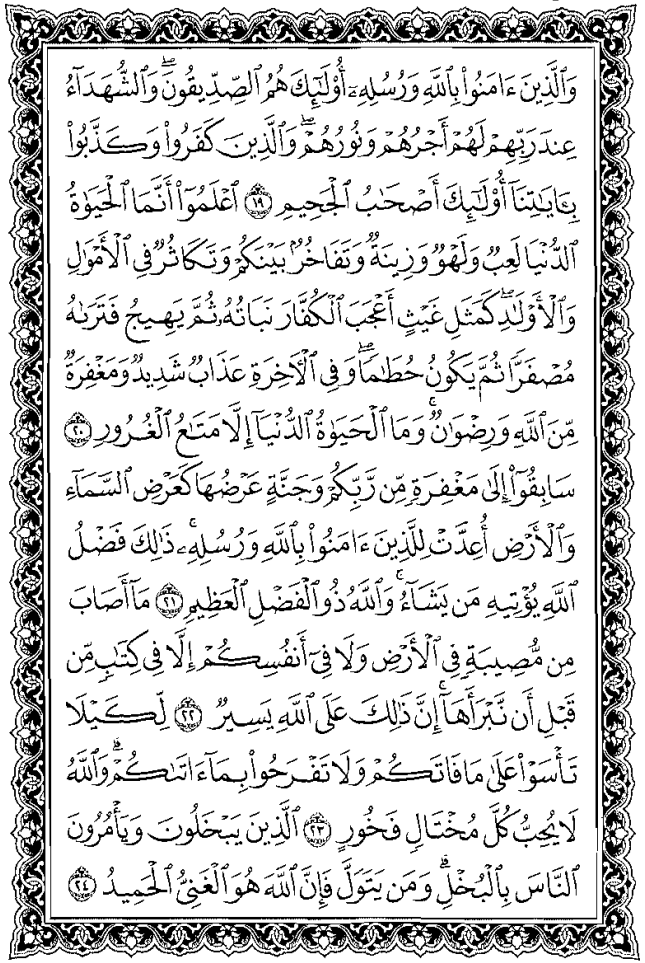 وَٱلَّذِينَ ءَامَنُوا۟ بِٱللَّهِ وَرُسُلِهِۦٓ أُو۟لَٰٓئِكَ هُمُ ٱلصِّدِّيقُونَ ۖ وَٱلشُّهَدَآءُ
عِندَ رَبِّهِمْ لَهُمْ أَجْرُهُمْ وَنُورُهُمْ ۖ وَٱلَّذِينَ كَفَرُوا۟ وَكَذَّبُوا۟
بِـَٔايَٰتِنَآ أُو۟لَٰٓئِكَ أَصْحَٰبُ ٱلْجَحِيمِ ١٩ ٱعْلَمُوٓا۟ أَنَّمَا ٱلْحَيَوٰةُ
ٱلدُّنْيَا لَعِبٌ وَلَهْوٌ وَزِينَةٌ وَتَفَاخُرٌۢ بَيْنَكُمْ وَتَكَاثُرٌ فِى ٱلْأَمْوَٰلِ
وَٱلْأَوْلَٰدِ ۖ كَمَثَلِ غَيْثٍ أَعْجَبَ ٱلْكُفَّارَ نَبَاتُهُۥ ثُمَّ يَهِيجُ فَتَرَىٰهُ
مُصْفَرًّا ثُمَّ يَكُونُ حُطَٰمًا ۖ وَفِى ٱلْءَاخِرَةِ عَذَابٌ شَدِيدٌ وَمَغْفِرَةٌ
مِّنَ ٱللَّهِ وَرِضْوَٰنٌ ۚ وَمَا ٱلْحَيَوٰةُ ٱلدُّنْيَآ إِلَّا مَتَٰعُ ٱلْغُرُورِ ٢٠
سَابِقُوٓا۟ إِلَىٰ مَغْفِرَةٍ مِّن رَّبِّكُمْ وَجَنَّةٍ عَرْضُهَا كَعَرْضِ ٱلسَّمَآءِ
وَٱلْأَرْضِ أُعِدَّتْ لِلَّذِينَ ءَامَنُوا۟ بِٱللَّهِ وَرُسُلِهِۦ ۚ ذَٰلِكَ فَضْلُ
ٱللَّهِ يُؤْتِيهِ مَن يَشَآءُ ۚ وَٱللَّهُ ذُو ٱلْفَضْلِ ٱلْعَظِيمِ ٢١ مَآ أَصَابَ
مِن مُّصِيبَةٍ فِى ٱلْأَرْضِ وَلَا فِىٓ أَنفُسِكُمْ إِلَّا فِى كِتَٰبٍ مِّن
قَبْلِ أَن نَّبْرَأَهَآ ۚ إِنَّ ذَٰلِكَ عَلَى ٱللَّهِ يَسِيرٌ ٢٢ لِّكَيْلَا
تَأْسَوْا۟ عَلَىٰ مَا فَاتَكُمْ وَلَا تَفْرَحُوا۟ بِمَآ ءَاتَىٰكُمْ ۗ وَٱللَّهُ
لَا يُحِبُّ كُلَّ مُخْتَالٍ فَخُورٍ ٢٣ ٱلَّذِينَ يَبْخَلُونَ وَيَأْمُرُونَ
ٱلنَّاسَ بِٱلْبُخْلِ ۗ وَمَن يَتَوَلَّ فَإِنَّ ٱللَّهَ هُوَ ٱلْغَنِىُّ ٱلْحَمِيدُ ٢٤